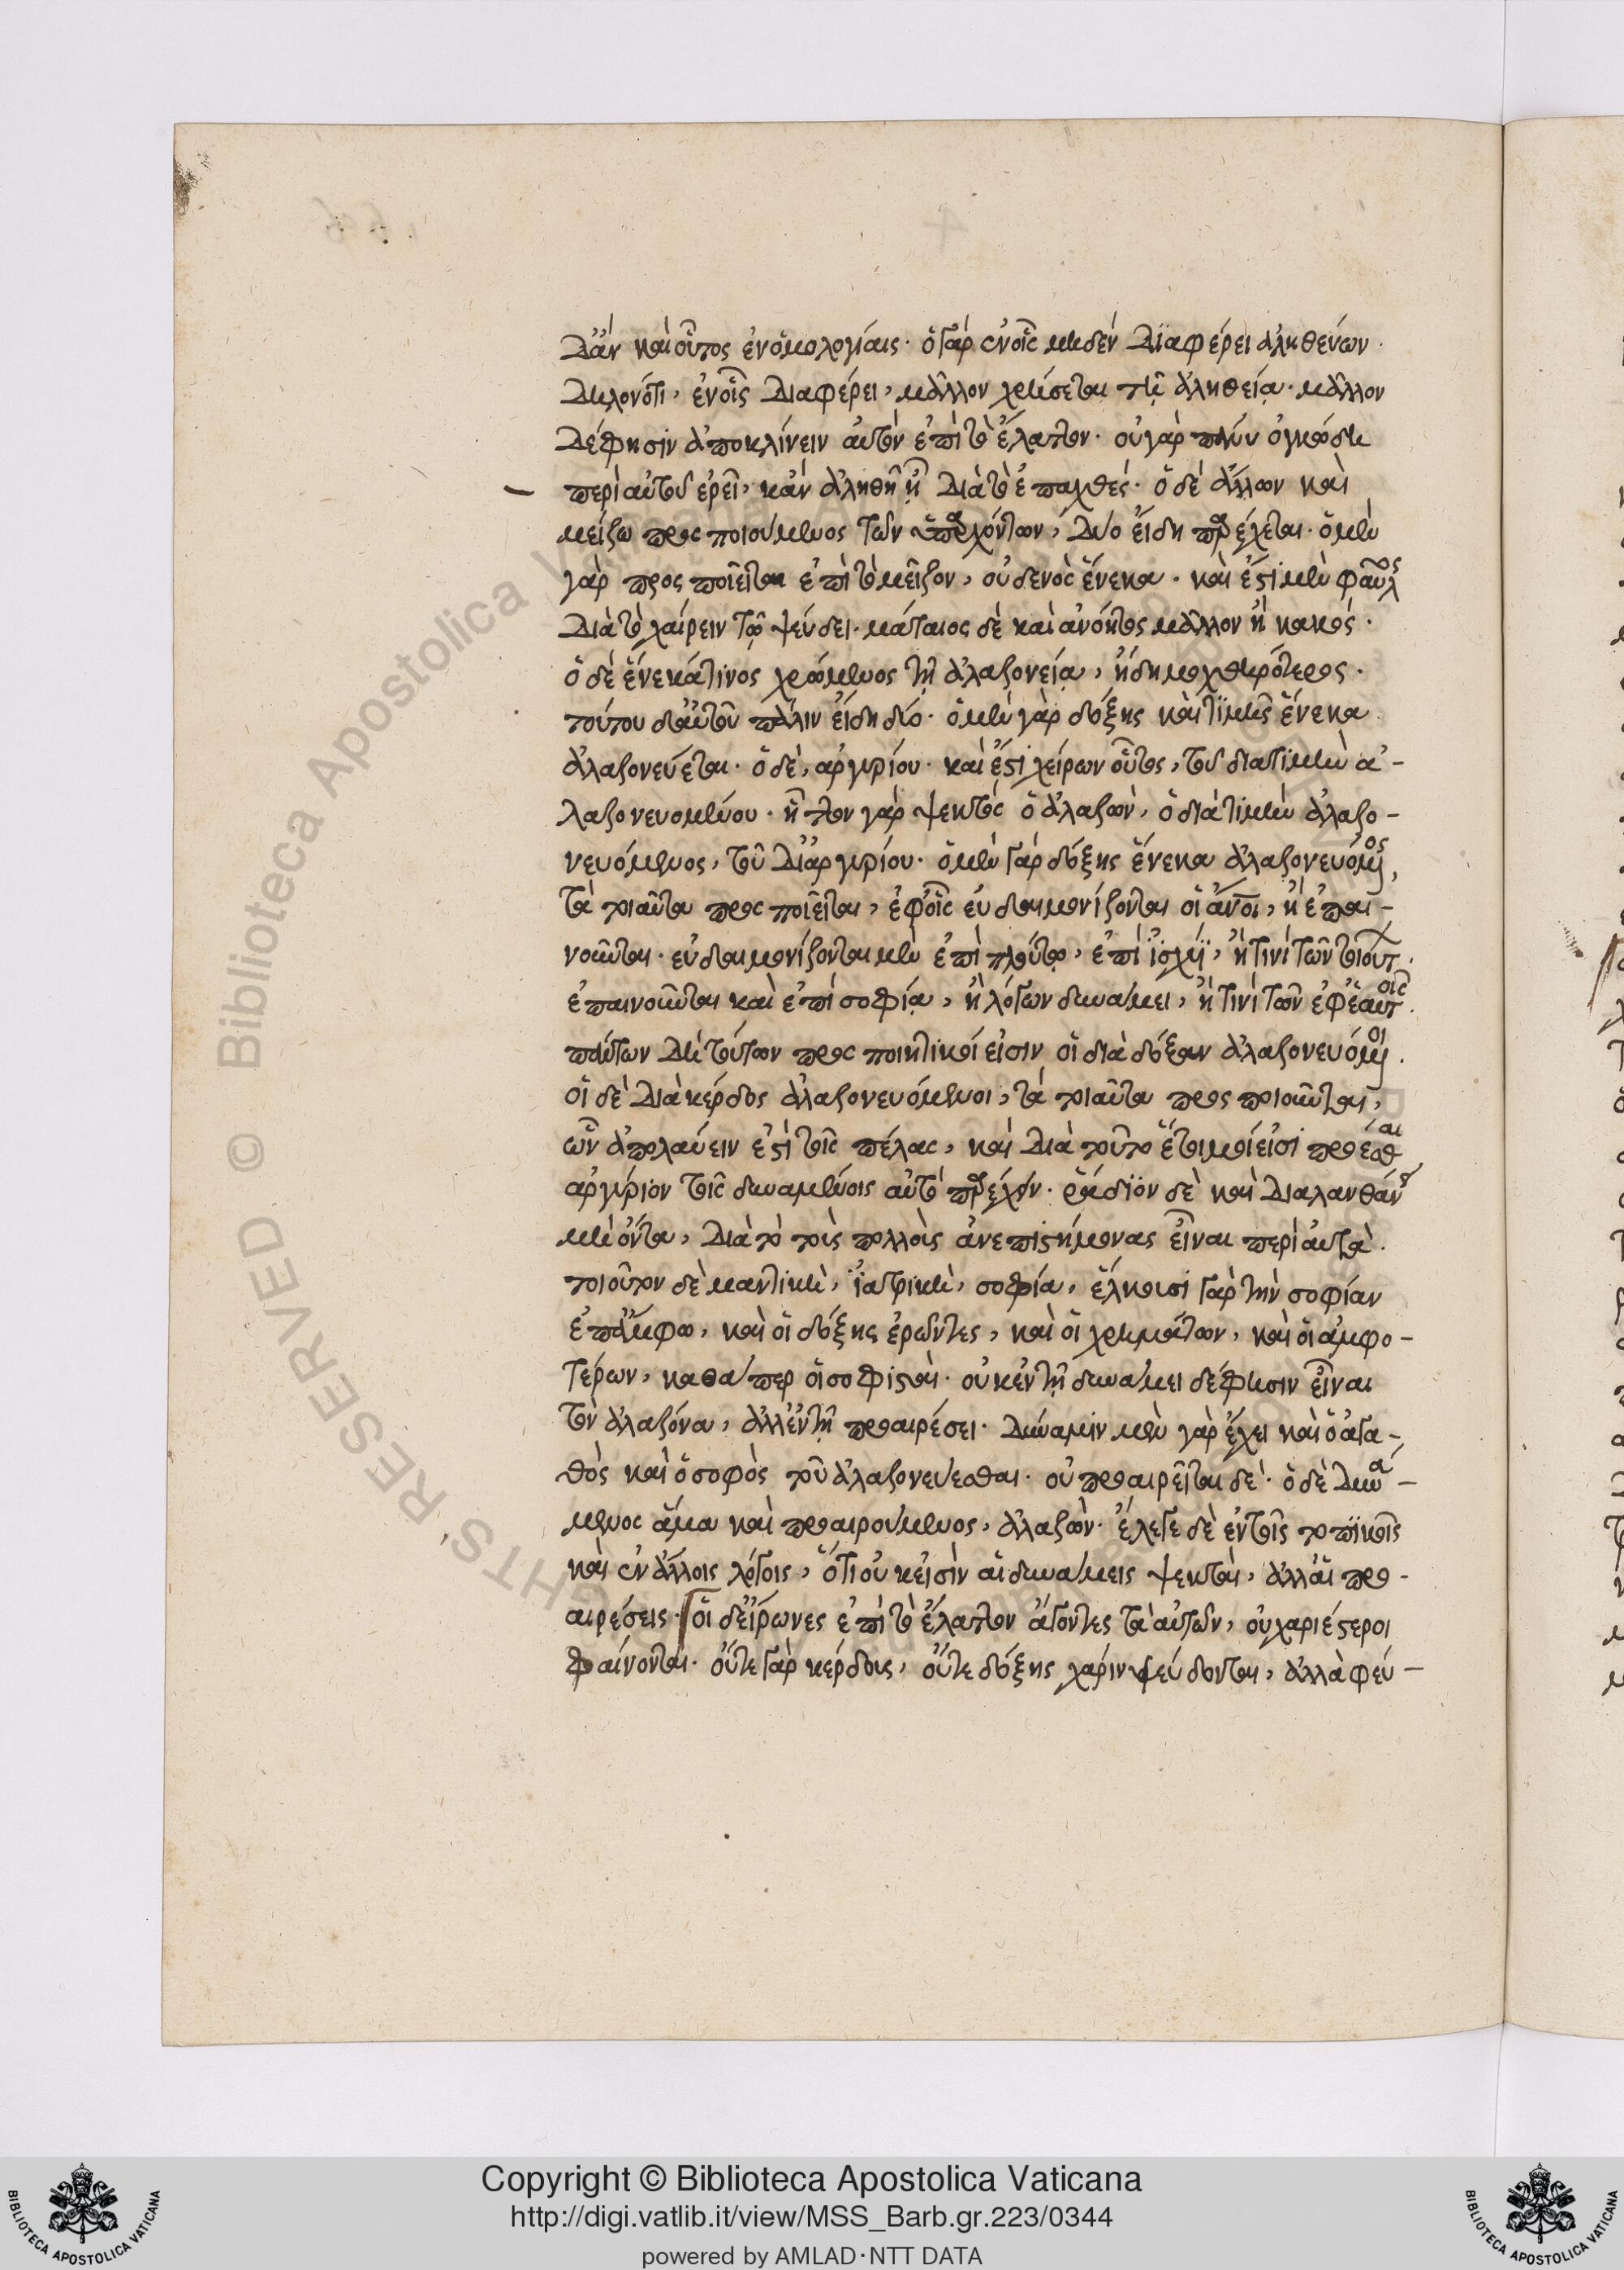 δἂν καὶ οὗτος ἐν ὁμολογίαις· ὁ γὰρ ἐν οἷς μηδὲν διαφέρει ἀληθεύων·
δηλονότι, ἐν οἷς διαφέρει, μᾶλλον χρήσεται τῇ ἀληθείᾳ· μᾶλλον
δέ φησιν ἀποκλίνειν αὐτὸν ἐπὶ τὸ ἔλαττον· οὐ γὰρ πάνυ ὀγκώδη
περὶ αὐτοῦ ἐρεῖ, κἂν ἀληθῆ ᾖ διὰ τὸ ἐπαχθές· ὁ δὲ ἄλλων καὶ
μείζω προσποιούμενος τῶν ὑπαρχόντων, δύο εἴδη παρέχεται· ὁ μὲν
γὰρ προσποιεῖται ἐπὶ τὸ μεῖζον, οὐδενὸς ἕνεκα· καὶ ἔστι μὲν φαῦλος
διὰ τὸ χαίρειν τῷ ψεύδει· μάταιος δὲ καὶ ἀνόητος μᾶλλον ἢ κακός·
ὁ δὲ ἕνεκά τινος χρώμενος τῇ ἀλαζονείᾳ, ἤδη μοχθηρότερος·
τούτου δ' αὐτοῦ πάλιν εἴδη δύο· ὁ μὲν γὰρ δόξης καὶ τιμῆς ἕνεκα
ἀλαζονεύεται· ὁ δὲ, ἀργυρίου· καὶ ἔστι χείρων οὗτος, τοῦ διὰ τιμὴν ἀ-
λαζονευομένου· ἧττον γὰρ ψεκτὸς ὁ ἀλαζὼν, ὁ διὰ τιμὴν ἀλαζο-
νευόμενος, τοῦ δι' ἀργυρίου· ὁ μὲν γὰρ δόξης ἕνεκα ἀλαζονευόμενος,
τὰ τοιαῦτα προσποιεῖται, ἐφ' οἷς εὐδαιμονίζονται οἱ ἄνοι, ἢ ἐπαι-
νοῦνται· εὐδαιμονίζονται μὲν ἐπὶ πλούτῳ, ἐπὶ ἰσχύϊ, ἤ τινι τῶν τοιούτ.
ἐπαινοῦνται καὶ ἐπὶ σοφίᾳ, ἢ λόγων δυνάμει, ἤ τινι τῶν ἐφ' ἑαυτοῖς.
πάντων δὴ τούτων προσποιητικοί εἰσιν οἱ διὰ δόξαν ἀλαζονευόμενοι.
οἱ δὲ διὰ κέρδος ἀλαζονευόμενοι, τὰ τοιαῦτα προσποιοῦνται,
ὧν ἀπολαύειν ἐστὶ τοῖς πέλας, καὶ διὰ τοῦτο ἕτοιμοί εἰσι προέσθαι
ἀργύριον τοῖς δυναμένοις αὐτὸ παρέχειν· ῥᾴδιον δὲ καὶ διαλανθάνειν
μὴ ὄντα, διὰ τὸ τοὺς πολλοὺς ἀνεπιστήμονας εἶναι περὶ αὐτὰ.
τοιοῦτον δὲ μαντικὴ, ἰατρικὴ, σοφία, ἕλκουσι γὰρ τὴν σοφίαν
ἐπ' ἄμφω, καὶ οἱ δόξης ἐρῶντες, καὶ οἱ χρημάτων, καὶ οἱ ἀμφο-
τέρων, καθάπερ οἱ σοφισταὶ· οὐκ ἐν τῇ δυνάμει δέ φησιν εἶναι
τὸν ἀλαζόνα, ἀλλ' ἐν τῇ προαιρέσει· δύναμιν μὲν γὰρ ἔχει καὶ ὁ ἀγα-
θὸς καὶ ὁ σοφὸς τοῦ ἀλαζονεύεσθαι· οὐ προαιρεῖται δέ· ὁ δὲ δυνά-
μενος ἅμα καὶ προαιρούμενος, ἀλαζών· ἔλεγε δὲ ἐν τοῖς τοπικοῖς
καὶ ἐν ἄλλοις λόγοις, ὅτι οὐκ εἰσὶν αἱ δυνάμεις ψεκταὶ, ἀλλ' αἱ προ-
αιρέσεις· οἱ δ' εἴρωνες ἐπὶ τὸ ἔλαττον ἄγοντες τὰ αὑτῶν, οὐ χαριέστεροι
φαίνονται· οὔτε γὰρ κέρδους, οὔτε δόξης χάριν ψεύδονται, ἀλλὰ φεύ-
Copyright © Biblioteca Apostolica Vaticana
http://digi.vatlib.it/view/MSS_Barb.gr.223/0344
powered by AMLAD·NTT DATA